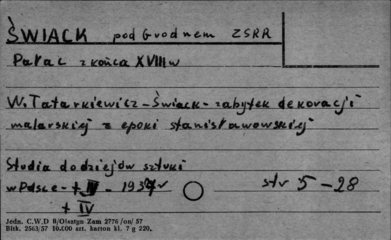 ŚWIACK pod Grodnem ZSRR
Pałac z końca XVIII w
W. Tatarkiewicz - Świack - zabytek dekoracji
malarskiej z epoki stanisławowskiej
Studia do dziejów sztuki
w Polsce - t - 193 r str 5-28
t IV
Jedn. C.W.D 8/Olsztyn Zam 2776/on/57
Bltk. 2563/57 10.000 szt. karton kl. 7 g 220.